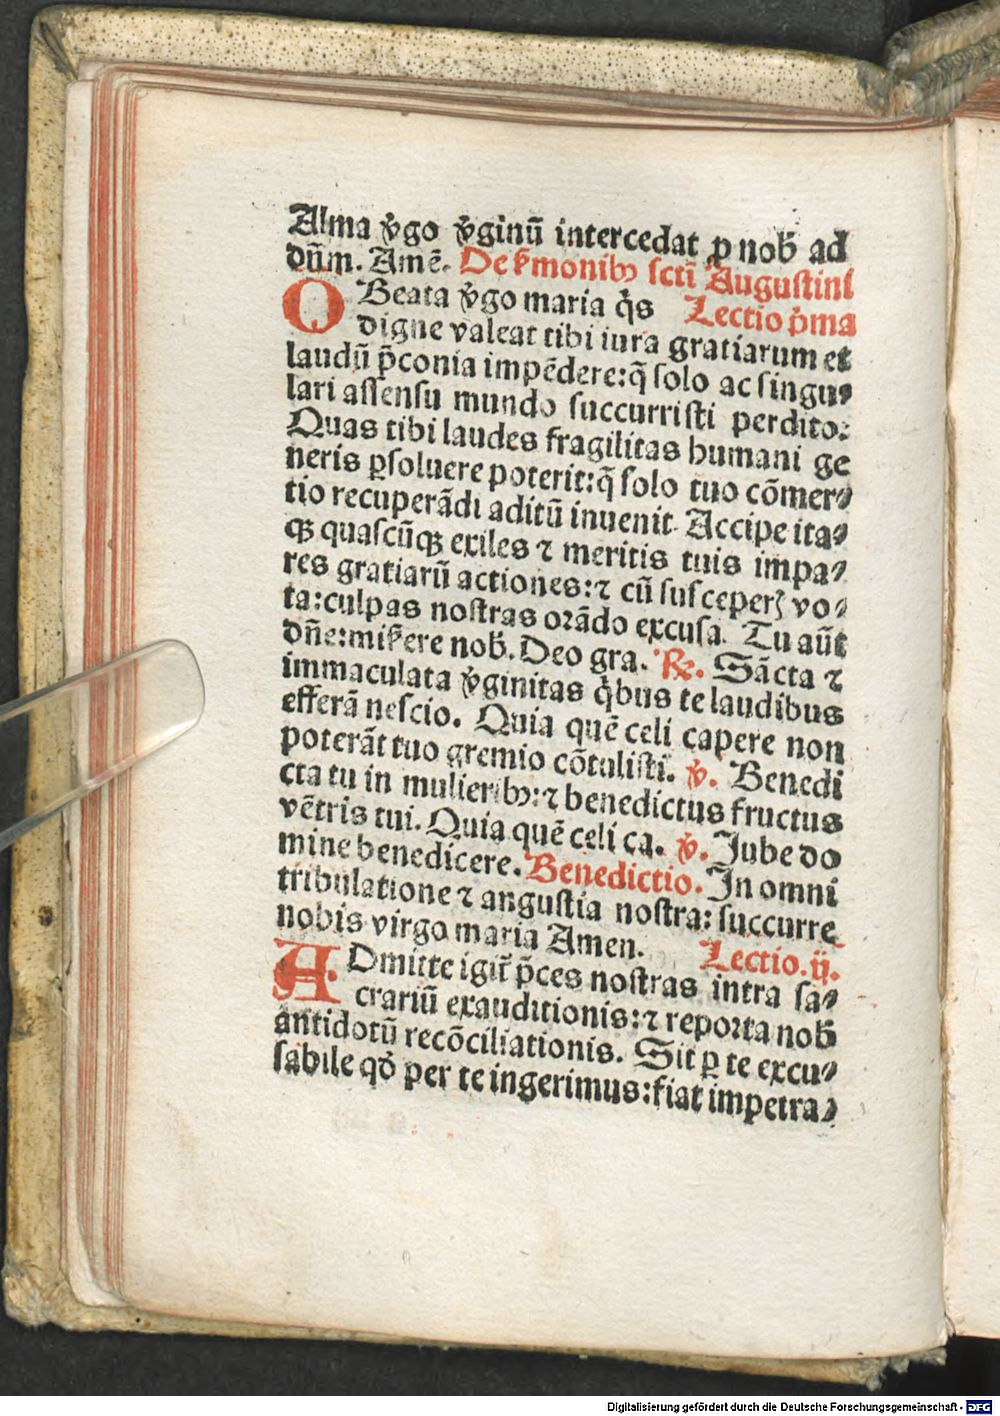 Alma v̾go v̾ginū intercedat ꝓ nob̾ ad
dn̄m. Amē. De ẜmonibꝰ sctī Augustini
O Beata v̾go maria q̇s Lectio p̾ma
digne valeat tibi iura gratiarum et
laudū p̄conia impēdere: q̄ solo ac singu⸗
lari assensu mundo succurristi perdito:
Quas tibi laudes fragilitas humani ge
neris ꝑsoluere poterit: q̄ solo tuo cōmer⸗
tio recuperādi aditū inuenit. Accipe ita⸗
qꝫ quascūqꝫ exiles ⁊ meritis tuis impa⸗
res gratiarū actiones: ⁊ cū susceperꝭ vo⸗
ta: culpas nostras orādo excusa. Tu aūt
dn̄e: miẜere nob̾. Deo gra. ℞. Sācta ⁊
immaculata v̾ginitas q̇bus te laudibus
efferā nescio. Quia quē celi capere non
poterāt tuo gremio cōtulisti. ℣. Benedi
cta tu in mulieribꝰ: ⁊ benedictus fructus
vētris tui. Quia quē celi ca. ℣. Jube do
mine benedicere. Benedictio. In omni
tribulatione ⁊ angustia nostra: succurre
nobis virgo maria Amen. Lectio. ij.
ADmitte igit᷑ p̄ces nostras intra sa⸗
crariū exauditionis: ⁊ reporta nob̾
antidotū recōciliationis. Sit ꝑ te excu⸗
sabile qd̾ per te ingerimus: fiat impetra⸗
Digitalisierung gefördert durch die Deutsche Forschungsgemeinschaft - DFG